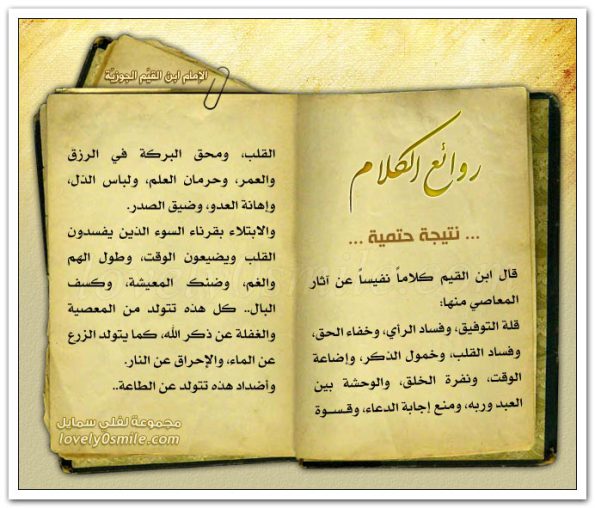 الإمام ابن القيّم الجوزيّة
روائع الكلام
... نتيجة حتمية ...
قال ابن القيم كلاماً نفيساً عن آثار
المعاصي منها:
قلة التوفيق، وفساد الرأي، وخفاء الحق،
وفساد القلب، وخمول الذكر، وإضاعة
الوقت، ونفرة الخلق، والوحشة بين
العبد وربه، ومنع إجابة الدعاء، وقسوة
القلب، ومحق البركة في الرزق
والعمر، وحرمان العلم، ولباس الذل،
وإهانة العدو، وضيق الصدر.
والابتلاء بقرناء السوء الذين يفسدون
القلب ويضيعون الوقت، وطول الهم
والغم، وضنك المعيشة، وكسف
البال.. كل هذه تتولد من المعصية
والغفلة عن ذكر الله، كما يتولد الزرع
عن الماء، والإحراق عن النار.
وأضداد هذه تتولد عن الطاعة..
مجموعة لفلي سمايل
lovely0smile.com